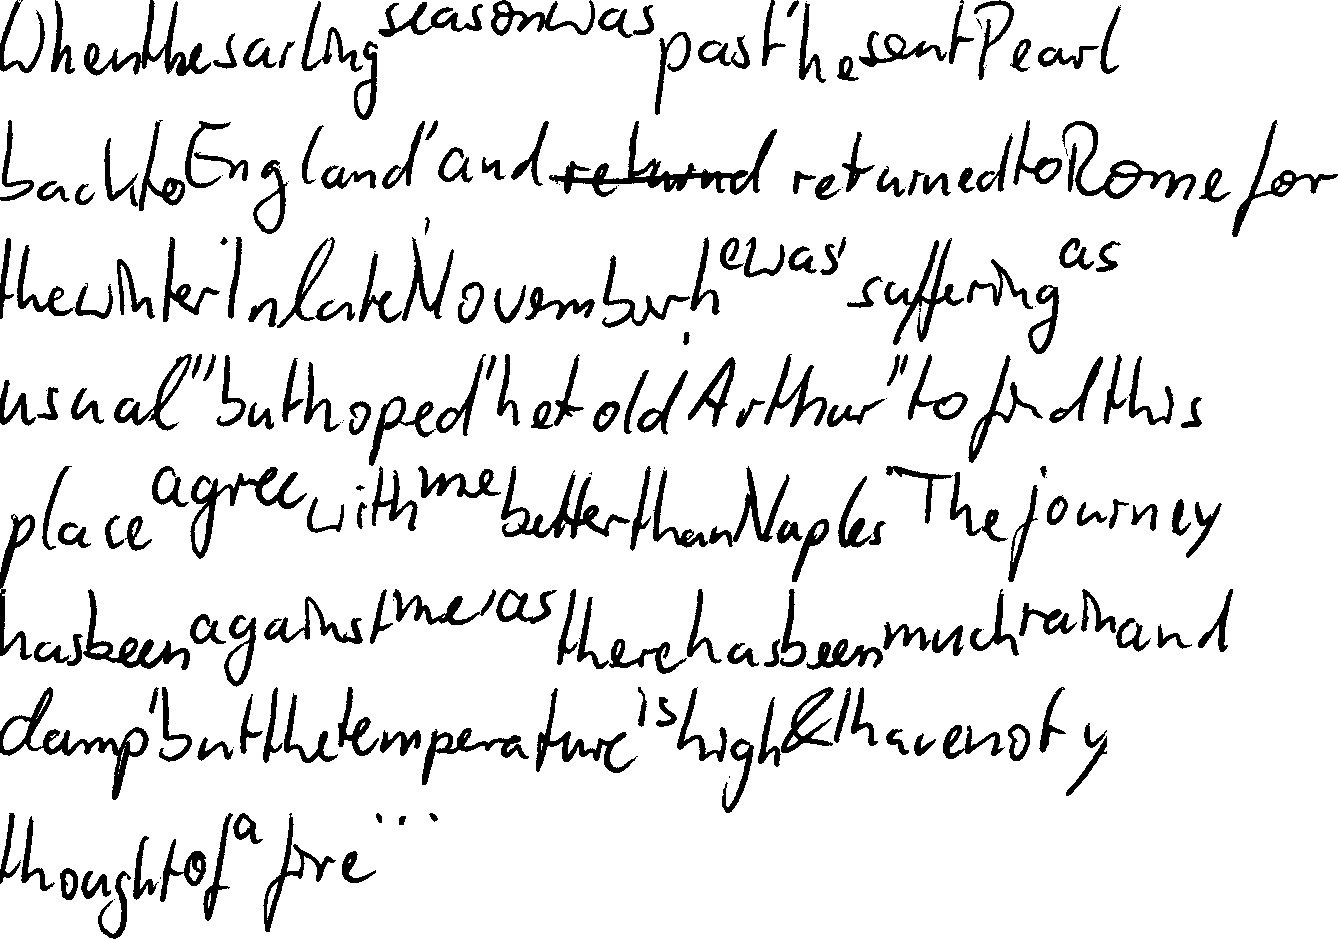 When the sailing season was past he sent Pearl
back to England, and returned to Rome for
the winter. In late November he was "suffering as
usual", but hoped, he told Arthur, "to find this
place agree with me better than Naples. The journey
has been against me, as there has been much rain and
damp, but the temperature is high & I have not y
thought of a fire...